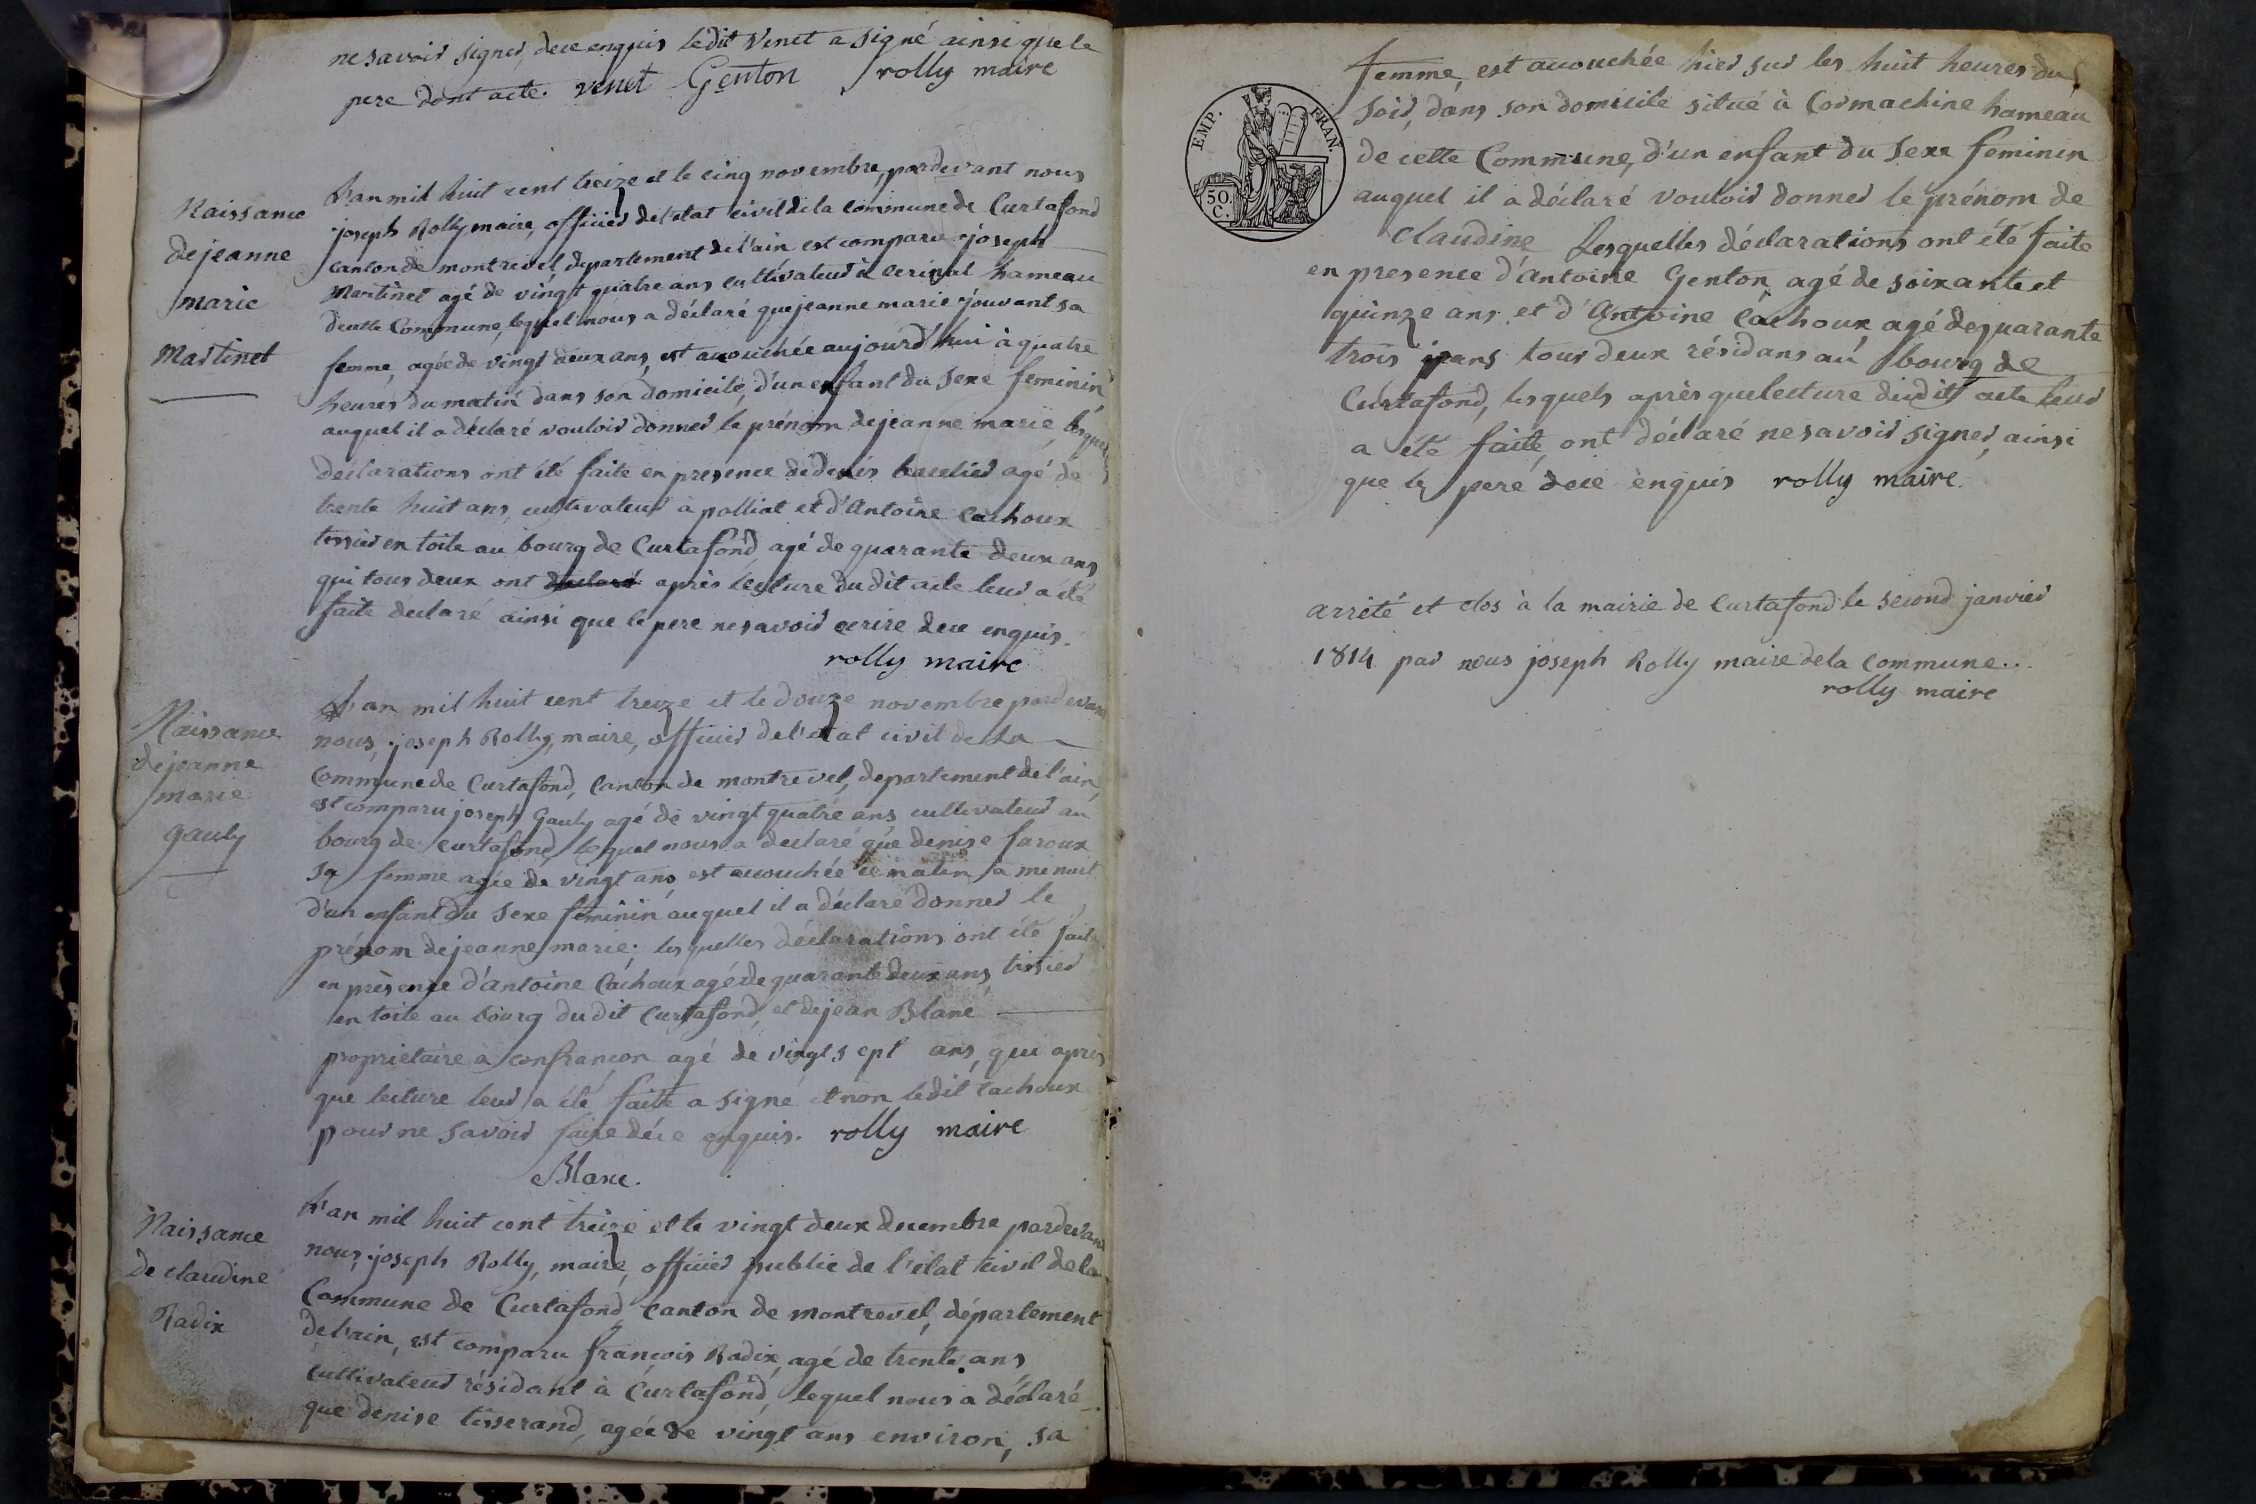 ne savoir signer, de ce enquis ledit Venet a signé ainsi que le
pere dont acte. venet Genton rolly maire
Naissance
de jeanne
marie
Martinet
L'an mil huit cent treize et le cinq novembre, pardevant nous
joseph Rolly maire, officier de l'etat civil de la commune de Curtafond
canton de montrevel, departement de l'ain est comparu joseph
Martinet agé de vingt quatre ans cultivateur à cerisat hameau
de cette Commune, lequel nous a déclaré que jeanne marie jouvant sa
femme, agée de vingt deux ans, est accouchée aujourd'hui à quatre
heures du matin dans son domicile, d'un enfant du sexe feminin
auquel il a déclaré vouloir donner le prénom de jeanne marie, lesquelles
déclarations ont été faite en présence de denis bacelier agé de
trente huit ans, cultivateur à polliat et d'Antoine Cachoux
tissier en toile au bourg de Curtafond agé de quarante deux ans
qui tous deux ont declaré après lecture du dit acte leur a été
faite declaré ainsi que le pere ne savoir ecrire de ce enquis.
rolly maire
Naissance
de jeanne
marie
gauly
L'an mil huit cent treize et le douze novembre pardevant
nous, joseph Rolly, maire, officier de l'etat civil de la
Commune de Curtafond, Canton de montrevel, departement de l'ain,
est comparu joseph Gauly agé de vingt quatre ans cultivateur au
bourg de Curtafond, lequel nous a declaré que denise faroux
sa femme agée de vingt ans, est accouchée ce matin à minuit
d'un enfant du sexe feminin auquel il a déclaré donner le
prénom de jeanne marie; lesquelles déclarations ont été faite
en présence d'antoine Cachoux agé de quarante deux ans, tissier
en toile au bourg du dit Curtafond, et de jean Blanc
proprietaire à confrançon agé de vingt sept ans, qui après
que lecture leur a été faite a signé et non ledit Cachoux
pour ne savoir faire de ce enquis. rolly maire
Blanc.
Naissance
de claudine
Radix
L'an mil huit cent treize et le vingt deux decembre pardevant
nous, joseph Rolly, maire, officier public de l'état civil de la
Commune de Curtafond, Canton de montrevel, département
de l'ain, est comparu françois Radix, agé de trente ans,
Cultivateur résidant à Curtafond, lequel nous a déclaré
que denise tisserand, agée de vingt ans environ, sa
EMP. FRAN.
50
C.
femme, est accouchée hier sur les huit heures du
soir, dans son domicile situé à Cormachine hameau
de cette Commune, d'un enfant du sexe feminin
auquel il a déclaré vouloir donner le prénom de
Claudine, Lesquelles déclarations ont été faite
en presence d'Antoine Genton agé de soixante et
quinze ans et d'Antoine Cachoux, agé de quarante
trois ans tous deux résidans au bourg de
Curtafond, lesquels après que lecture dudit acte leur
a été faite, ont déclaré ne savoir signer, ainsi
que le pere de ce enquis rolly maire.
arrêté et clos à la mairie de Curtafond le second janvier
1814 par nous joseph Rolly maire de la Commune...
rolly maire